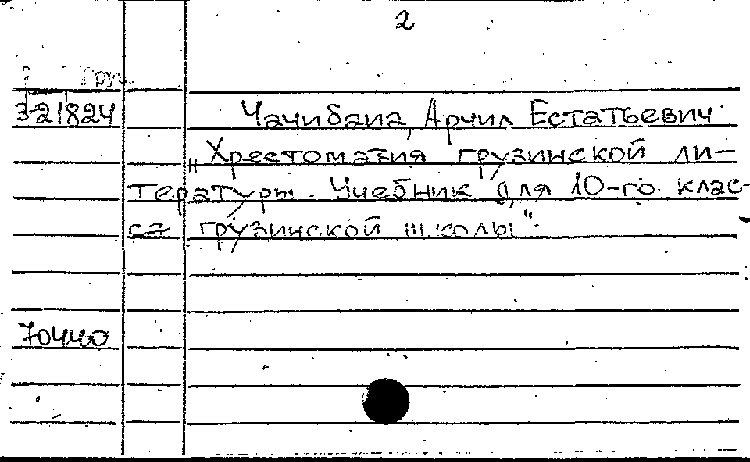 2
Груз.
3-2/824 Чачибаиа, Арчил Естатьевич
„Хрестоматия грузинской ли-
тературы. Учебник для 10-го клас-
са грузинской школы".
70440